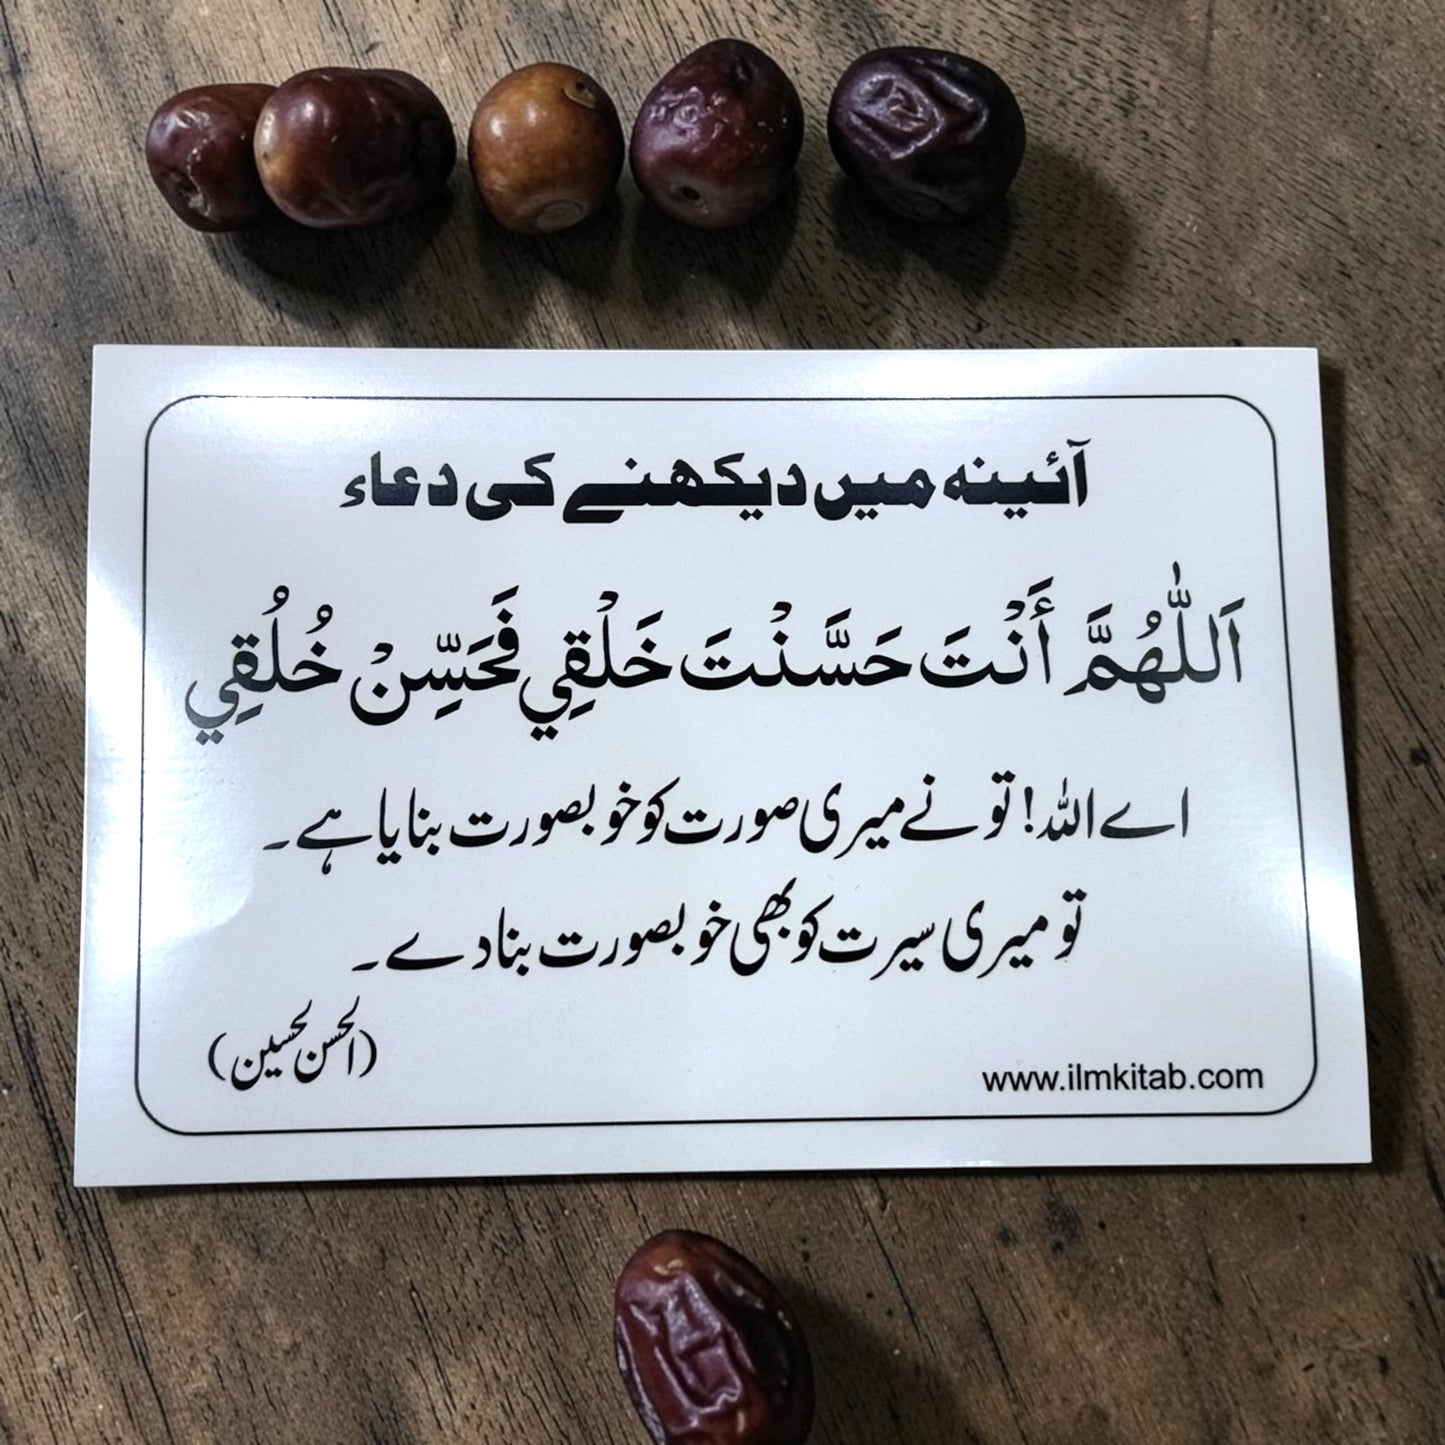 آئینہ میں دیکھنے کی دعاء
اَللّٰهُمَّ أَنْتَ حَسَّنْتَ خَلْقِي فَحَسِّنْ خُلُقِي
اے اللہ! تو نے میری صورت کو خوبصورت بنایا ہے۔
تو میری سیرت کو بھی خوبصورت بنا دے۔
(الحسن الحسین)
www.ilmkitab.com